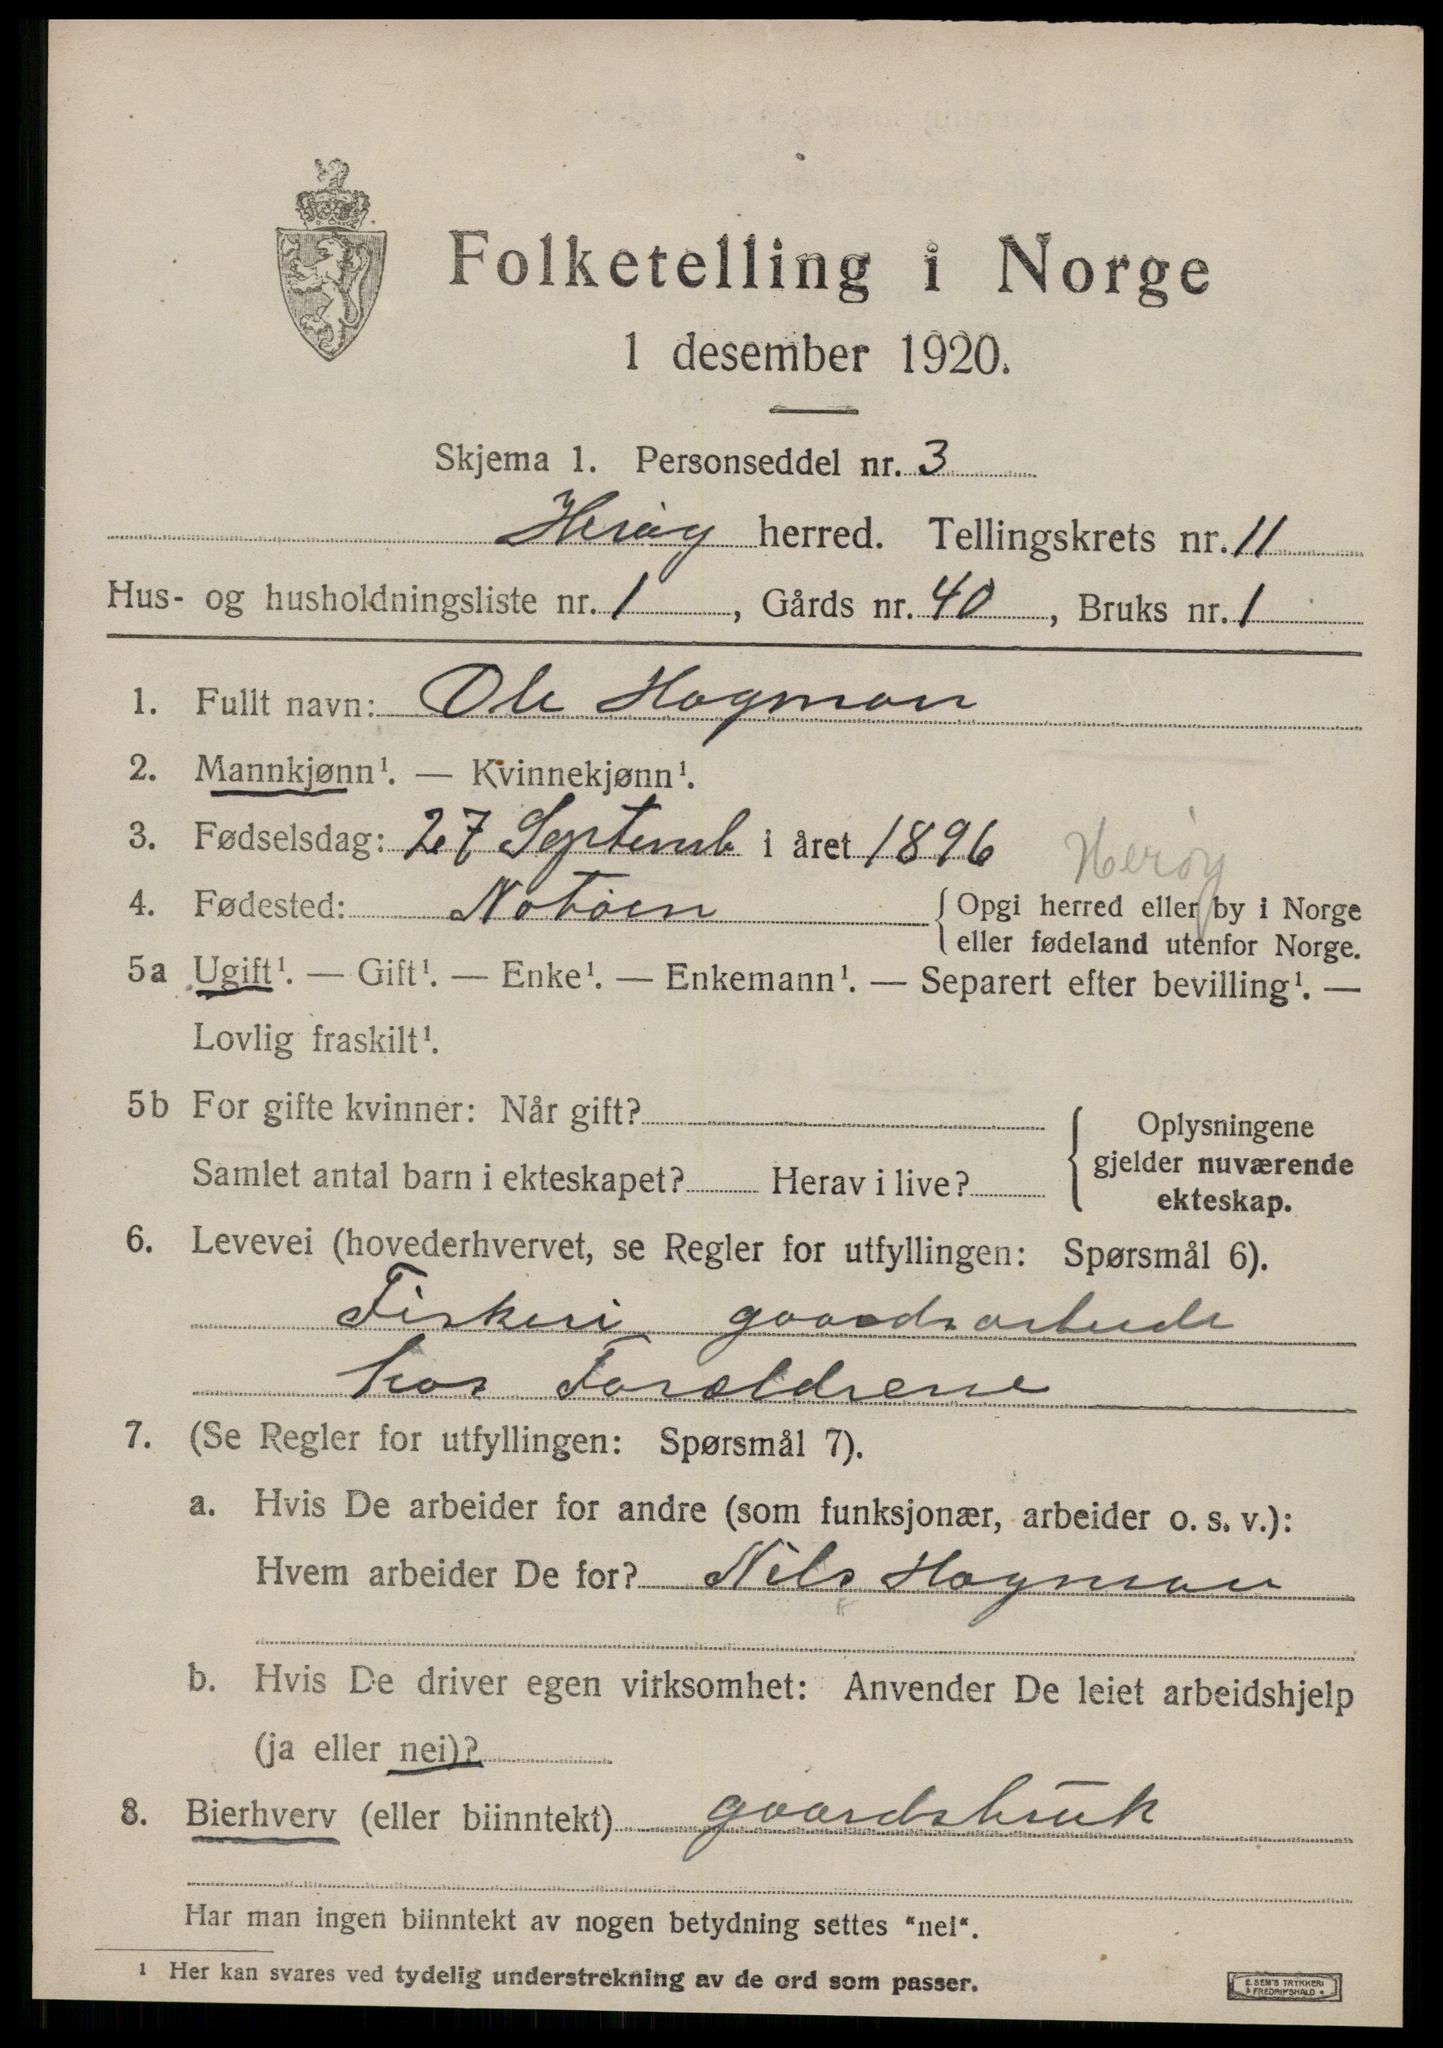 Folketelling i Norge
1 desember 1920.
Skjema 1. Personseddel nr. 3
Herøy herred. Tellingskrets nr. 11
Hus- og husholdningsliste nr. 1, Gårds nr. 40, Bruks nr. 1
1. Fullt navn: Ole Hagman
2. Mannkjønn¹. — Kvinnekjønn¹.
3. Fødselsdag: 27 Septemb i året 1896
Herøy
4. Fødested: Notøen {Opgi herred eller by i Norge
eller fødeland utenfor Norge.
5a Ugift¹. — Gift¹. — Enke¹. — Enkemann¹. — Separert efter bevilling¹. —
Lovlig fraskilt¹.
5b For gifte kvinner: Når gift?
Samlet antal barn i ekteskapet? Herav i live?
{Oplysningene
gjelder nuværende
ekteskap.
6. Levevei (hovederhvervet, se Regler for utfyllingen: Spørsmål 6).
Fiskeri gaardsarbeide
hos Forældrene
7. (Se Regler for utfyllingen: Spørsmål 7).
a. Hvis De arbeider for andre (som funksjonær, arbeider o. s. v.):
Hvem arbeider De for? Nils Hagman
b. Hvis De driver egen virksomhet: Anvender De leiet arbeidshjelp
(ja eller nei)?
8. Bierhverv (eller biinntekt) gaardsbruk
Har man ingen biinntekt av nogen betydning settes "nei".
¹ Her kan svares ved tydelig understrekning av de ord som passer.
E. SEM'S TRYKKERI
FREDRIKSHALD